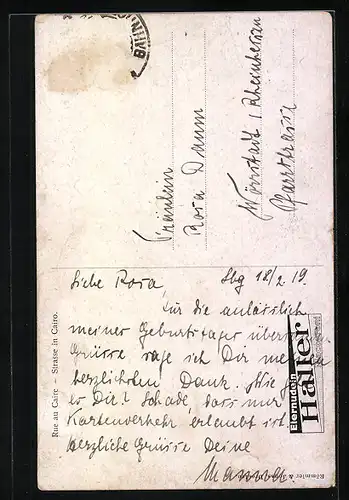 BAHN
Fräulein
Rosa Damm
Wörrstadt / Rheinhessen
Pfarrstrasse
Rue au Caire Strasse in Cairo.
Liebe Rosa, Sbg 18/2.19.
Für die anlässlich
meiner Geburtstages
Grüsse sage ich Dir meinen
herzlichsten Dank. Wie
es Dir? Schade, dass nur
Kartenverkehr erlaubt ist.
Herzliche Grüsse Deine
Eiernudeln
Haller